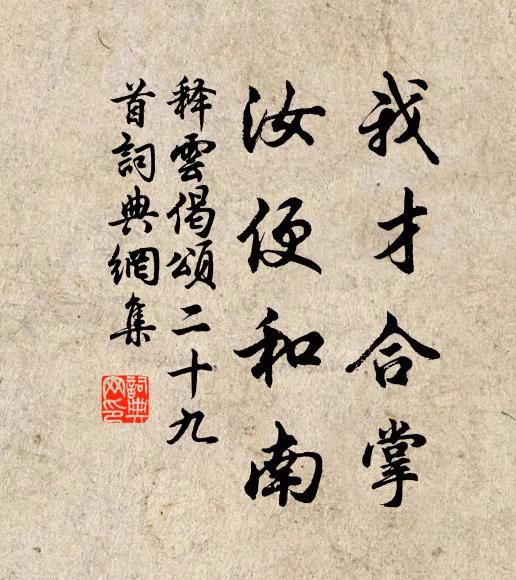 我才合掌
汝便和南
釋雲偈頌二十九
首詞典網集
詞典网印